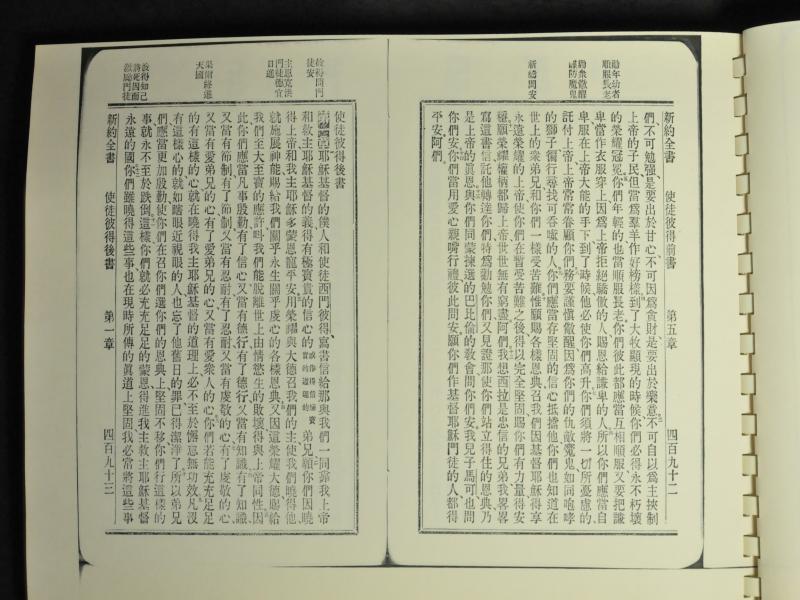 勸年幼者
順服長老
勸衆儆醒
謹防魔鬼
新總問安
新約全書 使徒彼得前書 第五章 四百九十二
們不可勉强是要出於甘心不可因爲貪財是要出於樂意不可自以爲主挾制
上帝的子民但當爲羣羊作好榜樣到了大牧顯現的時候你們必得永不朽壞
的榮耀冠冕你們年輕的也當順服長老你們彼此都應當互相順服又要把謙
卑當作衣服穿上因爲上帝拒絕驕傲的人賜恩給謙卑的人所以你們應當自
卑服在上帝大能的手下到了時候他必使你們高升你們須將一切所憂慮的
託付上帝上帝常常眷顧你們務要謹愼儆醒因爲你們的仇敵魔鬼如同咆哮
的獅子徧行尋找可吞噬的人你們應當存堅固的信心抵擋他你們也知道在
世上的衆弟兄和你們一樣受苦難惟願賜各樣恩典召我們因基督耶穌得享
永遠榮耀的上帝使你們在暫受苦難之後得以完全堅固賜你們有力量得安
穩願榮耀權柄都歸上帝世世無有窮盡阿們我想西拉是忠信的兄弟我畧畧
寫這書信託他轉達你們特爲勸勉你們又見證那使你們站立得住的恩典乃
是上帝的眞恩與你們同蒙揀選的巴比倫的敎會問你們安我兒子馬可也問
你們安你們當用愛心親嘴行禮彼此問安願你們作基督耶穌門徒的人都得
平安阿們
徒安
主恩寬洪
門徒德宜
日進
果爾終進
天國
彼得知己
將死因而
激厲門徒
使徒彼得後書
耶穌基督的僕人和使徒西門彼得寫書信給那與我們一同靠我上帝
和救主耶穌基督的義得有極寶貴的信心的弟兄願你們因曉
得上帝和我主耶穌多蒙恩寵平安用榮耀與大德召我們的主使我們曉得他
就施展神能賜給我們關乎永生關乎虔心的各樣恩典又因這榮耀大德賜給
我們至大至寶的應許叫我們能脫離世上由情慾生的敗壞得與上帝同性因
此你們應當凡事殷勤有了信心又當有德行有了德行又當有知識有了知識
又當有節制有了節制又當有忍耐有了忍耐又當有虔敬的心有了虔敬的心
又當有愛弟兄的心有了愛弟兄的心又當有愛衆人的心你們若能充充足足
的有這樣的心就在曉得我主耶穌基督的道理上必不至於懈怠無功效凡沒
有這樣心的就如瞎眼近視眼的人也忘了他舊日的罪已得潔淨了所以弟兄
們應當更加殷勤使你們在召你們選你們的恩典上堅固不移你們行這樣的
事就永不至於跌倒這樣你們就必充充足足的蒙恩得進我主救主耶穌基督
永遠的國你們雖曉得這些事也在現時所傳的眞道上堅固我必當將這些事
新約全書 使徒彼得後書 第一章 四百九十三